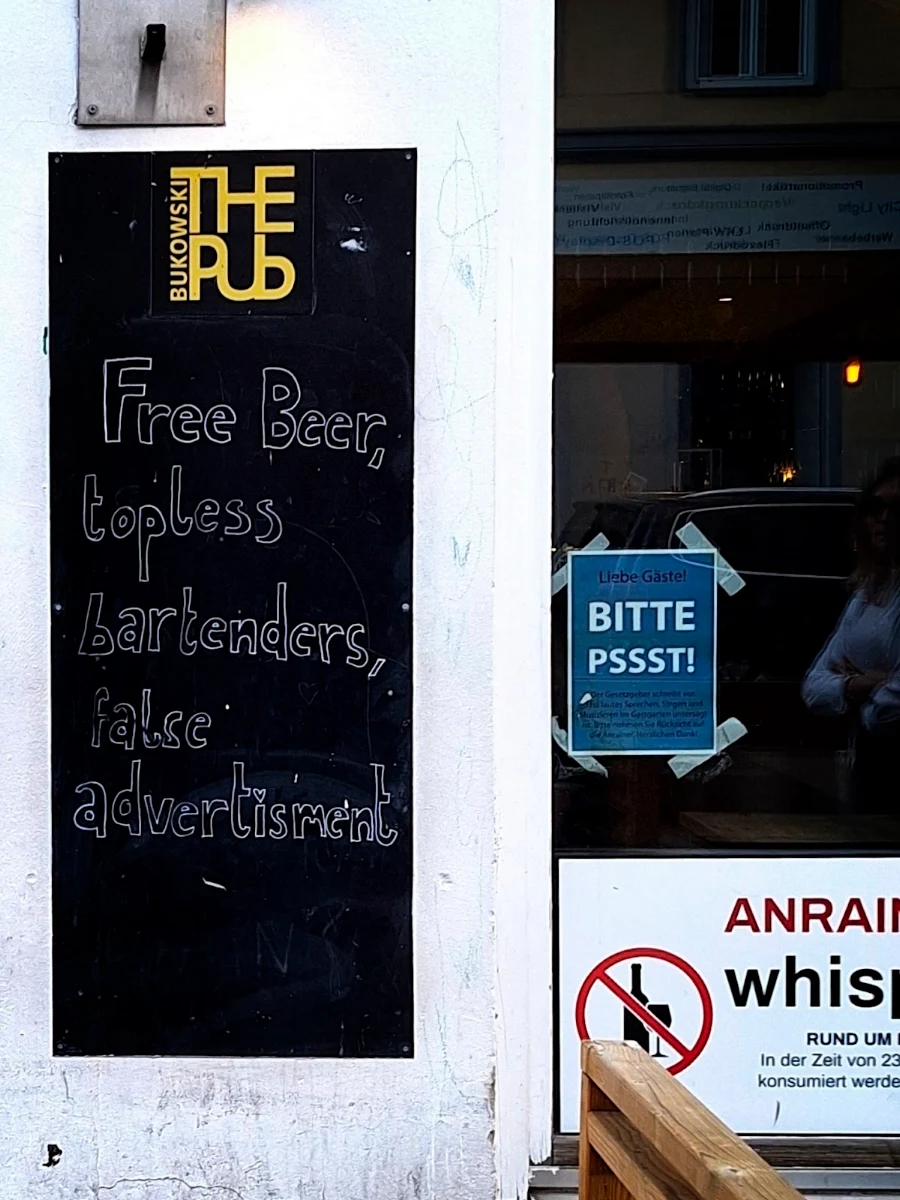 BUKOWSKI
THE
PUB
Free Beer,
topless
bartenders,
false
advertisment
Liebe Gäste!
BITTE
PSSST!
Der Gesetzgeber schreibt vor,
lautes Sprechen, Singen und
Musizieren im Gastgarten untersagt
ist. Bitte nehmen Sie Rücksicht auf
die Anrainer. Herzlichen Dank!
ANRAIN
whisp
RUND UM
In der Zeit von 23
konsumiert werde